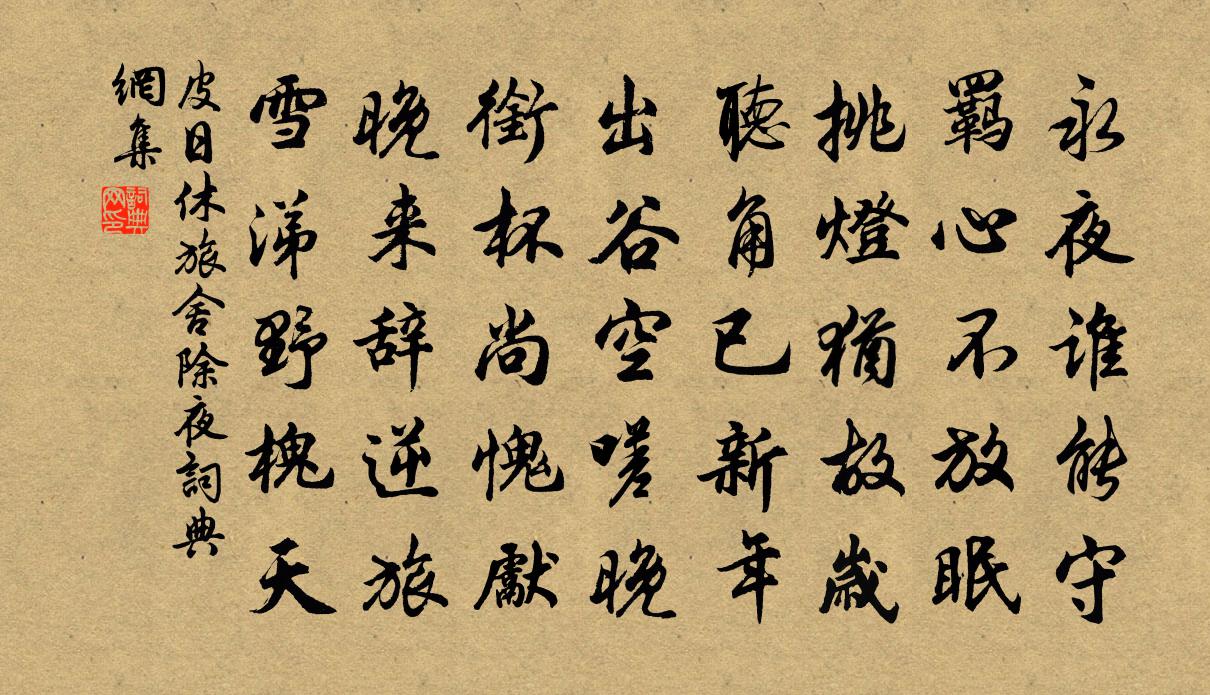 永夜誰能守
羈心不放眠
挑燈猶故歲
聽角已新年
出谷空嗟晚
銜杯尚愧獻
晚来辞逆旅
雪涕野槐天
皮日休旅舍除夜詞典
網集
詞典
网印